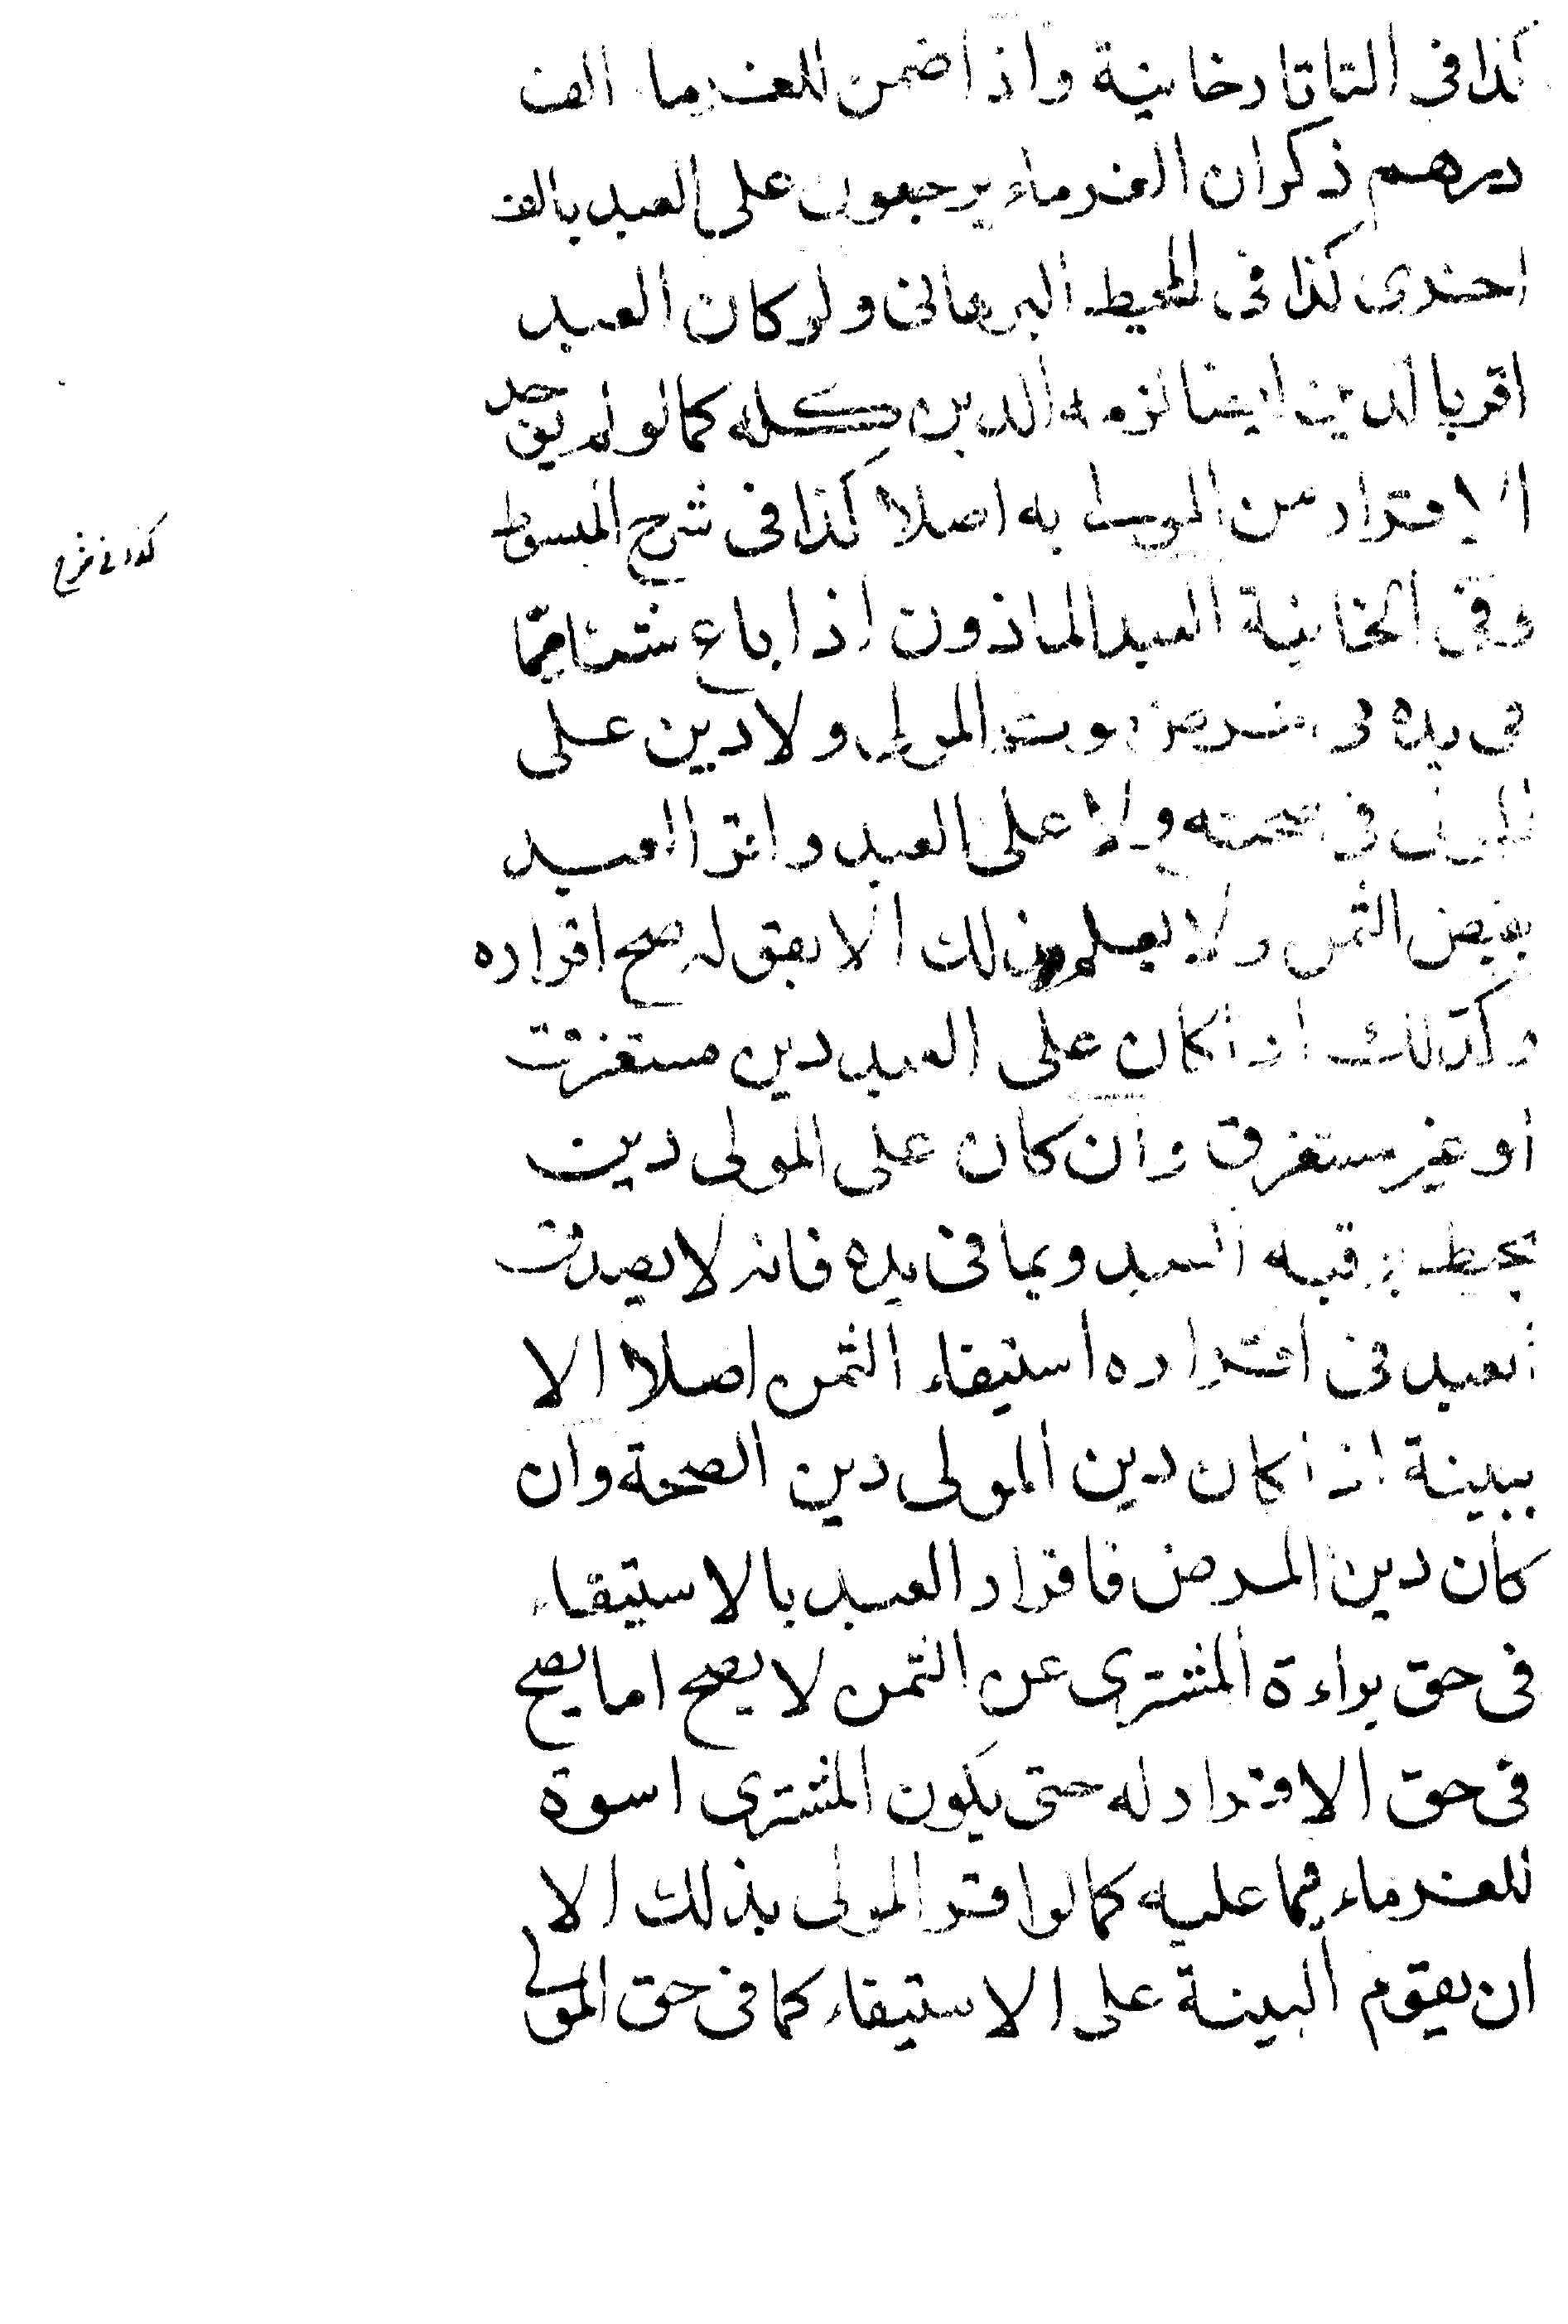 كذا فى التاتارخانية واذا ضمن للغرما الف
درهم ذكر ان الغرماء يرجعون على العبد بالف
اخرى كذا فى المحيط البرهانى ولو كان العبد
اقر بالدين ايضا لزمه الدين كله كما لو لم يوجد
الاقرار من المولى به اصلا كذا فى شرح المبسوط
وفى الخانية العبد الماذون اذا باع شئا مما
فى يده فى مرض موت المولى ولا دين على
المولى فى صحته ولا على العبد واقر العبد
بقبض الثمن ولا يعلم ذلك الا بقوله صح اقراره
وكذلك اذا كان على العبد دين مستغرق
او غير مستغرق وان كان على المولى دين
يحيط برقبه العبد وبما فى يده فانه لا يصدق
العبد فى اقراره استيفاء الثمن اصلا الا
ببينة اذا كان دين المولى دين الصحة وان
كان دين المرض فاقرار العبد بالاستيفاء
فى حق براءة المشترى عن الثمن لا يصح اما يصح
فى حق الاقرار له حتى يكون المشترى اسوة
للغرماء فيما عليه كما لو اقر المولى بذلك الا
ان يقوم البينة على الاستيفاء كما فى حق المولى
كذا فى شرح